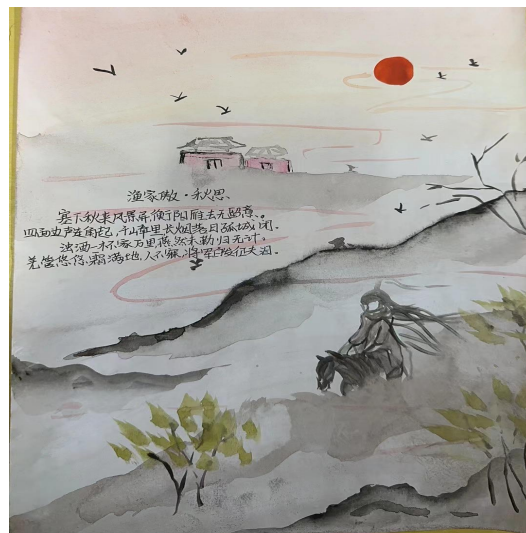 渔家傲·秋思
塞下秋来风景异,衡阳雁去无留意。
四面边声连角起,千嶂里长烟落日孤城闭。
浊酒一杯家万里,燕然未勒归无计,
羌管悠悠霜满地,人不寐,将军白发征夫泪。